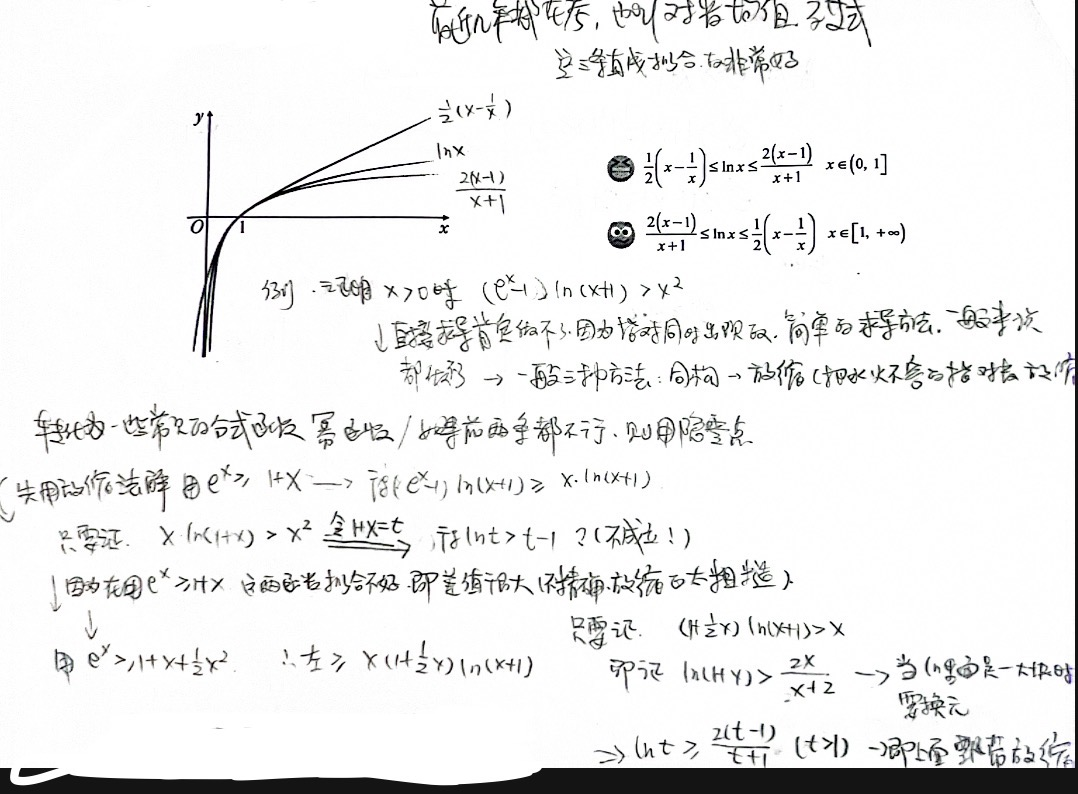 前几年都在考,也叫对数均值不等式
这三条曲线拟合的非常好
y
½(x-1/x)
lnx
2(x-1)/(x+1)
O 1 x
1/2(x-1/x)≤lnx≤2(x-1)/(x+1) x∈(0, 1]
2(x-1)/(x+1)≤lnx≤1/2(x-1/x) x∈[1, +∞)
例 证明 x>0时 (eˣ-1)ln(x+1)>x²
↓直接求导肯定做不了.因为指对同时出现的.简单的求导方法.一般来说
都做不了 → 一般三种方法:同构→放缩(把水火不容的指对数放缩
转化为一些常见的分式函数 幂函数/如果前两条都不行.则用隐零点
先用放缩法解 用eˣ≥1+x → 得(eˣ-1)ln(x+1)≥x·ln(x+1)
只要证. x·ln(1+x)>x² 令1+x=t 得lnt>t-1?(不成立!)
↓因为在用eˣ≥1+x 这两函数拟合不好.即差值很大(不精确.放缩的太粗糙)
↓
只要证. (1+½x)ln(x+1)>x
用 eˣ≥1+x+½x². ∴左≥x(1+½x)ln(x+1)
即证 ln(1+x)>2x/(x+2) →当ln里面是一大块时
要换元
⇒lnt≥2(t-1)/(t+1) (t>1) →即上面 放缩